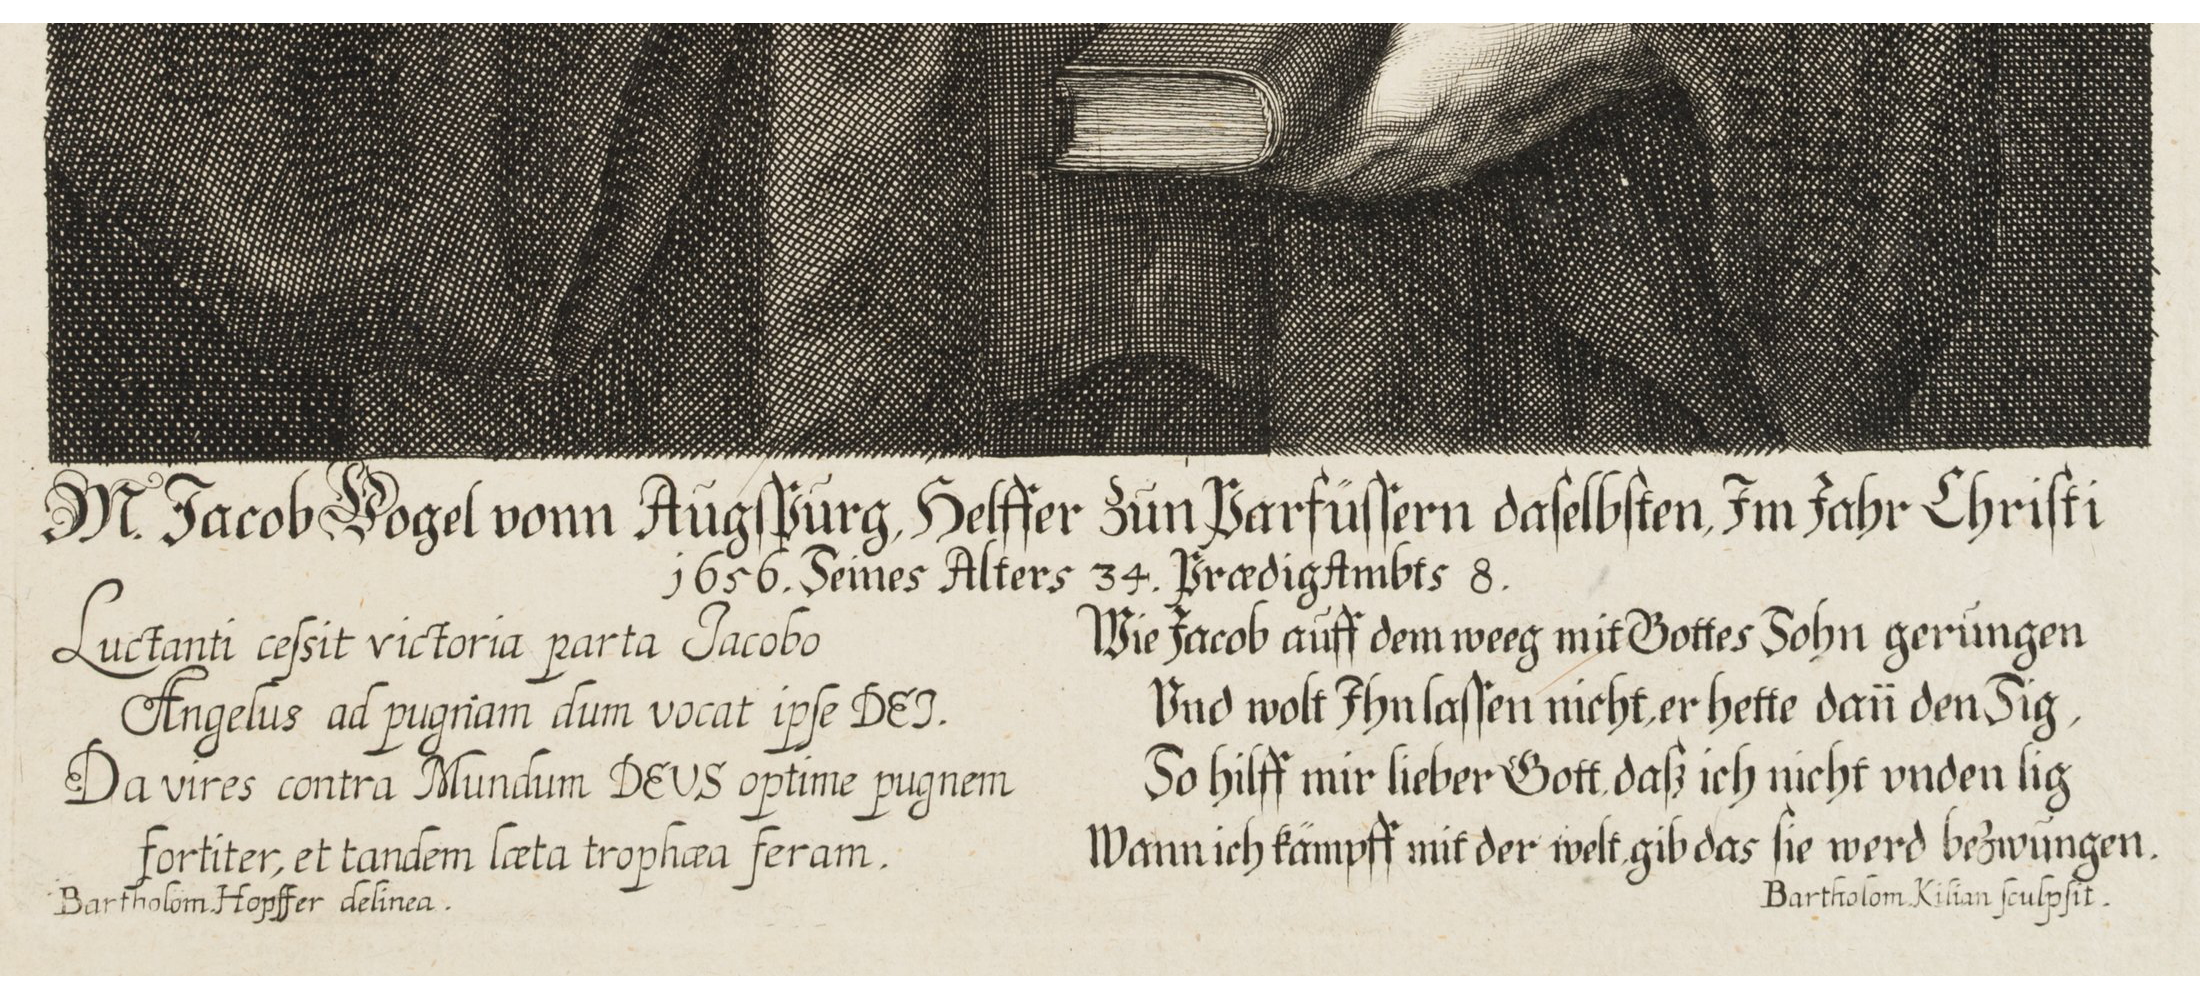 M. Jacob Vogel vonn Augſpurg, Helffer zun Parfüſſern daſelbſten, Im Jahr Chriſti
1656. Seines Alters 34. PrædigAmbts 8.
Luctanti ceſsit victoria parta Jacobo
Angelus ad pugnam dum vocat ipſe DEI.
Da vires contra Mundum DEUS optime pugnem
fortiter, et tandem læta trophæa feram.
Wie Jacob auff dem weeg mit Gottes Sohn gerungen
Vnd wolt Ihn laſſen nicht, er hette dañ den Sig,
So hilff mir lieber Gott, daſz ich nicht vnden lig
Wann ich kämpff mit der welt, gib das ſie werd bezwungen.
Bartholom. Hopffer delinea.
Bartholom. Kilian ſculpſit.